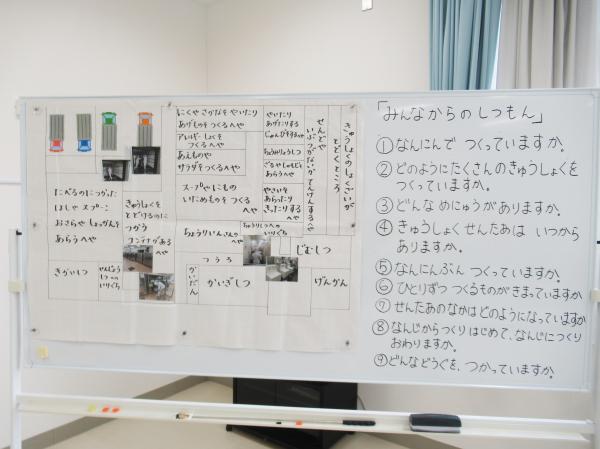 にくや さかなを やいたり
あげものを つくるへや
アレルギーしょくを
つくるへや
あえものや
サラダをつくるへや
スープや にもの
いためものを つくる
へや
やいたり
あげたりする
じゅんびをするへや
ちょうりいんさんの
へや
ちょうりしつへの
いりぐち
やさいを
あらったり
きったりする
へや
せんどや
いぶつがないか
てんけんするへや
きゅうしょくの
しょくざいが
とどくところ
たべるのにつかった
はしや スプーン
おさらや しょっかんを
あらうへや
きゅうしょくを
とどけるのに
つかう
コンテナがある
へや
きかいしつ
せんじょう
しつへの
いりぐち
つうろ
かいだん
かいぎしつ
じむしつ
げんかん
「みんなからのしつもん」
①なんにんで つくっていますか。
②どのようにたくさんのきゅうしょくを
つくっていますか。
③どんな めにゅうがありますか。
④きゅうしょく せんたあは いつから
ありますか。
⑤なんにんぶん つくっていますか。
⑥ひとりずつ つくるものがきまっていますか
⑦せんたあのなかはどのようになっていますか
⑧なんじからつくりはじめて、なんじにつくり
おわりますか。
⑨どんなどうぐを、つかっていますか。